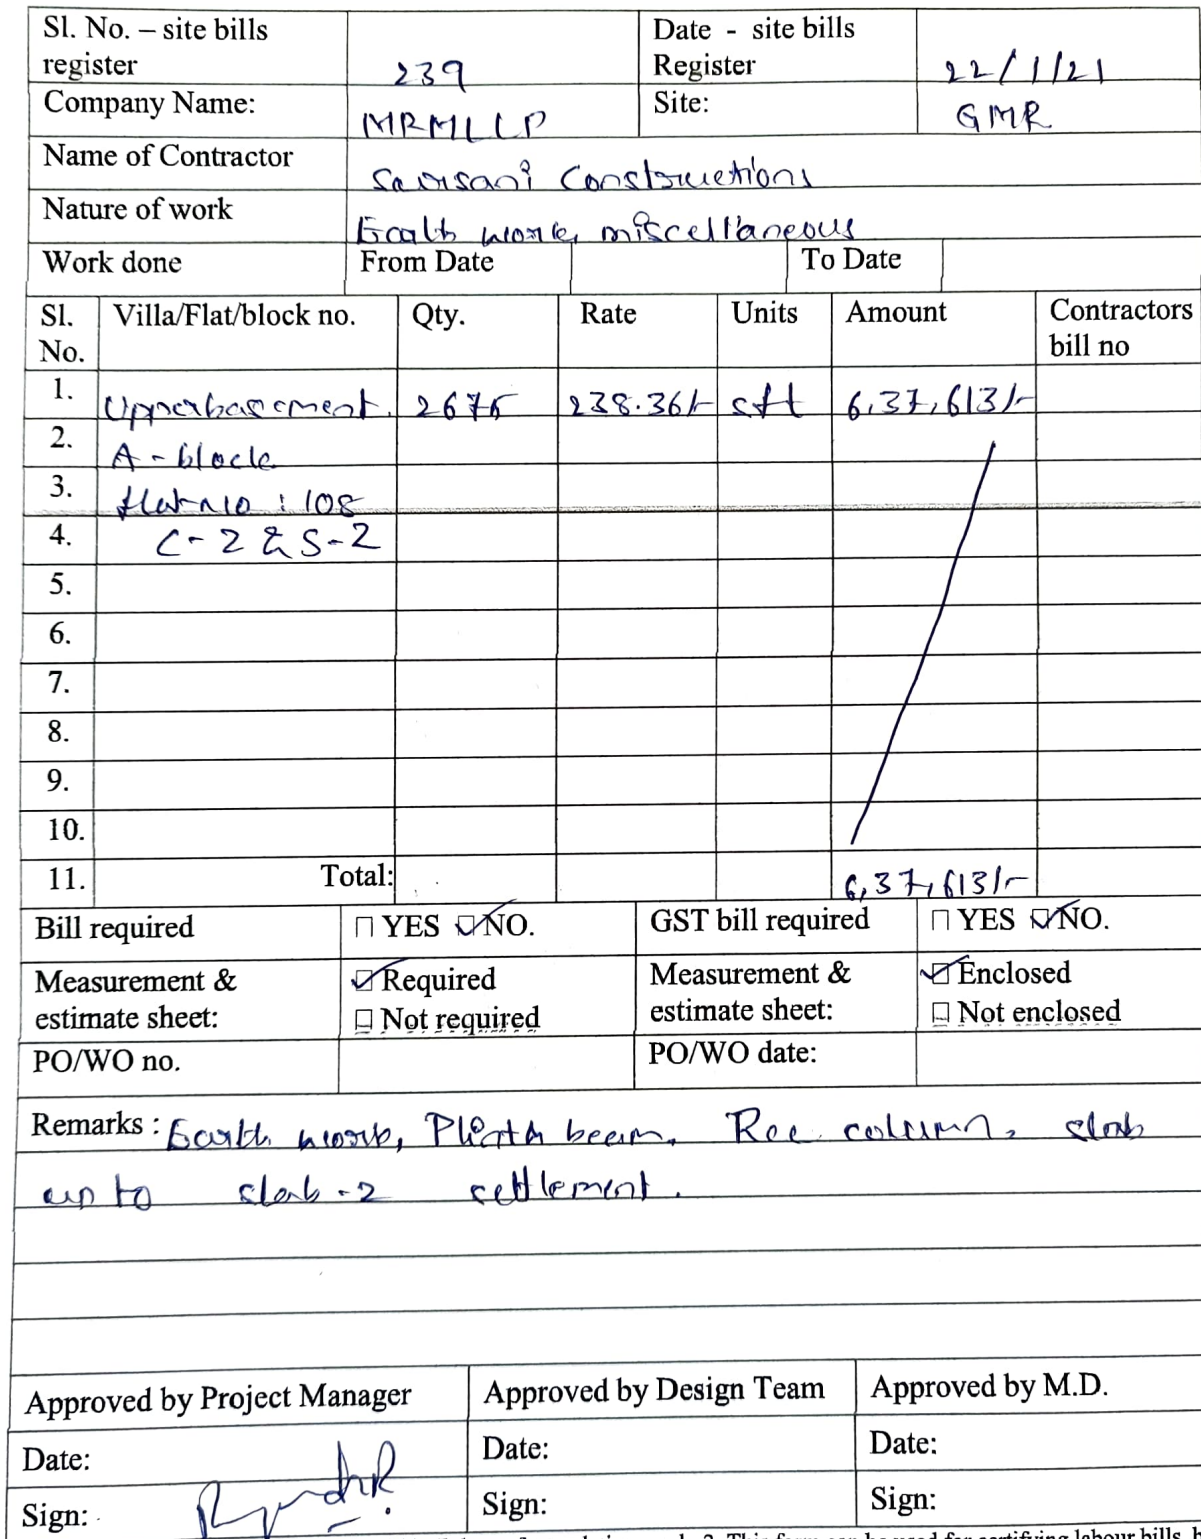 Sl. No. – site bills register 239 Date - site bills Register 22/1/21
Company Name: MRMLLP Site: GMR
Name of Contractor Sarsani Constructions
Nature of work Earth work, miscellaneous
Work done From Date To Date
Sl. No. Villa/Flat/block no. Qty. Rate Units Amount Contractors bill no
1. Upperbasement. 2675 238.36/- sft 6,37,613/-
2. A - block
3. flat no : 108
4. C-2 & S-2
5.
6.
7.
8.
9.
10.
11. Total: 6,37,613/-
Bill required YES NO. GST bill required YES NO.
Measurement & estimate sheet: Required Measurement & estimate sheet: Enclosed
Not required Not enclosed
PO/WO no. PO/WO date:
Remarks : Earth work, Plinth beam, Rcc column, slab
up to slab -2 settlement.
Approved by Project Manager Approved by Design Team Approved by M.D.
Date: Date: Date:
Sign: Sign: Sign:
This form can be used for certifying labour bills,